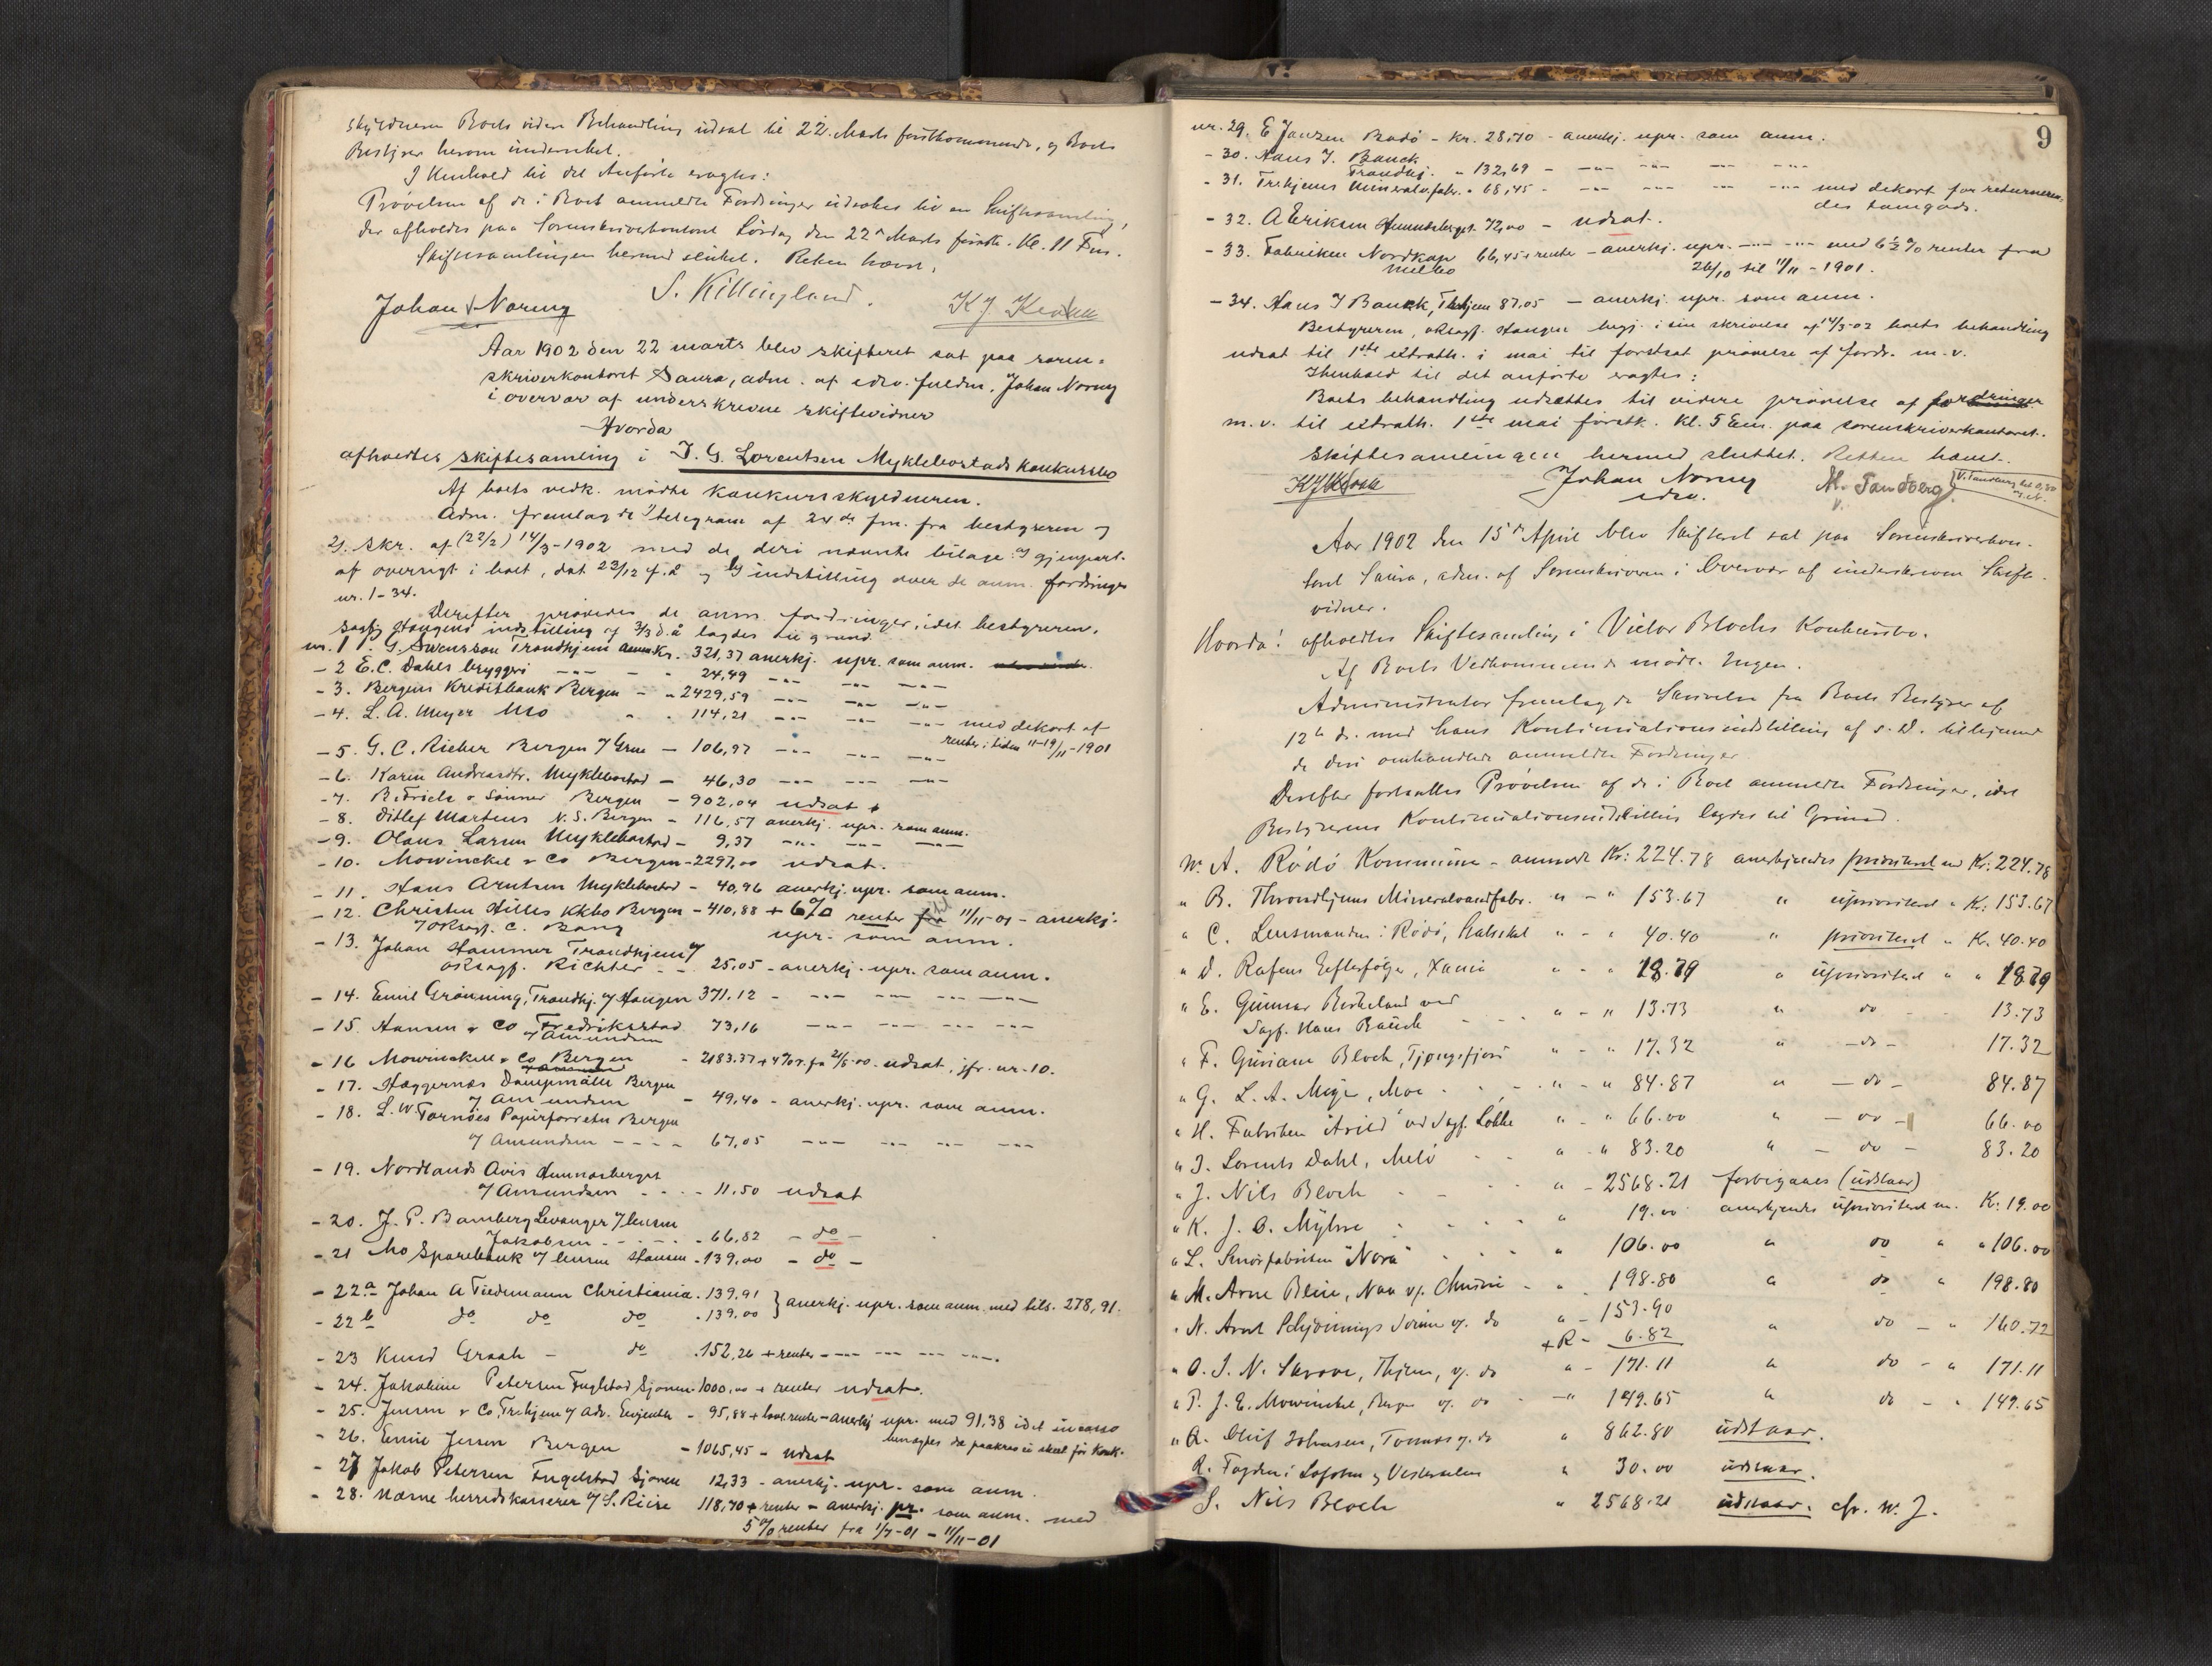 Skyldneren Boets videre Behandling udsat til 22. Marts førstkommende, og Boets
Bestyrer herom underrettet.
I Henhold til det Anførte eragtes:
Prøvelsen af de i Boet anmeldte Fordringer udsættes til en Skiftesamling,
der afholdes paa Sorenskriverkontoret Lørdag den 22de Marts førstk. Kl. 11 Fm.
Skiftesamlingen hermed sluttet. Retten hævet.
Johan Normy S. Killingland. K J Krokaa
Aar 1902 den 22 marts blev skifteret sat paa soren-
skriverkontoret Saura, adm. af edsv. fuldm. Johan Normy
i overvær af underskrevne skiftevidner
Hvorda
afholdtes skiftesamling i J. G. Lorentsen Myklebostads konkursbo
Af boets vedk. mødte konkursskyldneren.
Adm. fremlagde telegram af 24de fm. fra bestyreren og
2). skr. af (22/2) 14/3-1902 med de deri nævnte bilage: gjenpart
af oversigt i boet, dat 23/12 f. å og indstilling over de anm. fordringer
nr. 1-34.
Derefter prøvedes de anm. fordringer, idet bestyreren,
sagf. Haugens indstilling af 3/3 d.å lagdes til grund.
nr. 1. G. Svensson Trondhjem anm Kr. 321,37 anerkj. upr. som anm.
- 2 E. C. Dahls bryggeri -"- - " 24,49 -"- -"- -"-
- 3. Bergens Kreditbank Bergen - " 2429,59 -"- -"- -"-
- 4. L. A. Meyer Mo " " 114,21 -"- -"- -"- med dekort af
renter i tiden 11-19/11-1901
- 5. G. C. Rieber Bergen - 106,97 -"- -"- -"-
- 6. Karen Andreasdtr. Myklebostad - 46,30 -"- -"- -"-
- 7. B. Friele & Sønner Bergen - 902,04 udsat
- 8. Ditlef Martens N.S. Bergen - 116,57 anerkj. upr. som anm.
- 9. Olaus Larsen Myklebostad - 9,37 -"- -"- -"-
- 10. Mowinckel & Co Bergen - 2297,00 udsat.
- 11. Hans Arntsen Myklebostad - 40,96 anerkj. upr. som anm.
- 12. Christen Hilles Kkbo Bergen - 410,88 + 6% renter fra til 11/11-01 - anerkj.
v/ Oksagf. C. Bang upr. som anm.
- 13. Johan Hammer Trondhjem v/
oksagf. Richter - - 25,05 - anerkj. upr. som anm.
- 14. Emil Grønning, Trondhj. v/ Haugen 371.12 - -"- -"- -"-
- 15. Hansen & Co Fredrikstad 73,16 -"- -"- -"-
v/ Amundsen
- 16 Mowinckel & Co Bergen - 2183.37 + 4% r. fra 21/6 00. udsat, jfr. nr. 10.
- 17. Haggernæs Dampmølle Bergen
v/ Amundsen - 49,40 - anerkj. upr. som anm.
- 18. L. W. Tornöes Papirforretn Bergen
v/ Amundsen - - - - 67,05 -"- -"- -"- -"-
- 19. Nordlands Avis Hemnæsberget
v/ Amundsen - - - - 11.50 udsat
- 20. J. P. Bamberg Levanger v/ lensm
Jakobsen - - - - - 66,82 - do -
- 21 Mo Sparebank v/ lensm Hansen - 139,00 - do -
- 22a Johan A Tiedemann Christiania . 139.91 } anerkj. upr. som anm. med tils. 278,91.
- 22b do do do . 139.00
- 23 Knud Graah - do . 152,26 + renter - -"- -"- -"- -"-
- 24. Jakobine Petersen Fuglstad Sjonen . 1000,00 + renter udsat.
- 25. Jensen & Co, Tr.hjem v/ Adv. - 95,88 + renter - anerkj upr. med 91,38 idet incasso
benægtes da paakrav ei skeet før konk.
- 26. Emil Jensen Bergen - 1065,45 - udsat
- 27 Jakob Petersen Fuglstad Sjonen 12,33 - anerkj. upr. som anm.
- 28. Næsne herredskasserer v/ S. Riise 118,70 + renter - anerkj. pr. som anm. med
5% renter fra 1/7-01 - 11/11-01
9
nr. 29. E Jansen Bodø - Kr. 28,70 - anerkj. upr. som anm.
- 30. Hans J. Bauck
Trondhj. - " 132,69 - -"- -"- -"- -"-
- 31. Tr.hjems Mineralv.fabr. " 68,45 - -"- -"- -"- -"- med dekort for returneren-
des tomgods.
- 32. A Eriksen Hemnæsberget 72,00 - udsat.
- 33. Fabriken Nordkap 66,45 + renter - anerkj. upr. -"- -"- med 6½% renter fra
Melbo 26/10 til 11/11 - 1901.
- 34. Hans J Bauck, Th.hjem 87.05 - anerkj. upr. som anm.
Bestyreren, oksagf. Haugen begj. i sin skrivelse af 14/3-02 boets behandling
udsat til 1ste extrath. i mai til fortsat prøvelse af fordr. m.v.
I henhold til det anførte eragtes:
Boets behandling udsættes til videre prøvelse af fordringer
m.v. til extrath. 1ste mai førstk. kl. 5 Em. paa sorenskriverkontoret.
Skiftesamlingen hermed sluttet. Retten hævet.
K J Krokaa Johan Normy M. Sandberg
edsv.
Aar 1902 den 15de April blev Skifteret sat paa Sorenskriverkon-
toret Saura, adm. af Sorenskriveren i Overvær af underskrevne Skifte-
vidner.
Hvorda! afholdtes Skiftesamling i Victor Blochs Konkursbo.
Af Boets Vedkommende mødte Ingen.
Administrator fremlagde Skrivelse fra Boets Bestyrer af
12te ds. med hans Kontinuationsindstilling af s. D. tilligemed
de deri omhandlede anmeldte Fordringer
Derefter fortsattes Prøvelsen af de i Boet anmeldte Fordringer, idet
Bestyrerens Kontinuationsindstilling lagdes til Grund.
No. A. Rödö Kommune - anmeldt Kr: 224.78 anerkjendes prioriteret med Kr: 224.78
" B. Throndhjems Mineralvandfabr. " - " 153.67 " uprioriteret " Kr: 153.67
" C. Lensmanden i Rödö, " - " 40.40 " prioriteret " K. 40.40
" D. Rafens Efterfølger, Xania " - " 18.79 " uprioriteret " " 18.79
" E. Gunnar Birkeland ved
Sagf. Hans Bauck - - - " - " 13.73 " do - - 13.73
" F. Guriane Bloch, Tjongsfjord " - " 17.32 " - do - 17.32
" G. L. A. Meyer, Moe - - - " - " 84.87 " - do - 84.87
" H. Fabriken "Arild" ved Sagf. Løkke " - " 66.00 " - do - 66.00
" I. Lorents Dahl, Melö - - " - " 83.20 " - do - 83.20
" J. Nils Bloch - - - " - 2568.21 forbigaaes (udstaar)
" K. J. O. Myhre - - - " 19.00 anerkjendes uprioriteret m. Kr. 19.00
" L. Smörfabriken "Nora" - - - " 106.00 " do " " 106.00
" M. Arne v/ - " 198.80 " do " 198.80
" N. Arnt Schjönnings v/ do " - 153.90
+ R - 6.82 " do - " 160.72
" O. J. N. Skrove, Thjem, v/ do " - 171.11 " do - " 171.11
" P. J. E. Mowinckel, Bergen v/ do - " 149.65 " do - " 149.65
" Q. Oluf Johansen, v/ do " 862.80 udstaar.
R. Fogden i Lofoten og Vesteraalen " 30.00 udstaar.
S. Nils Bloch " 2568.21 udstaar. cfr. No. J.